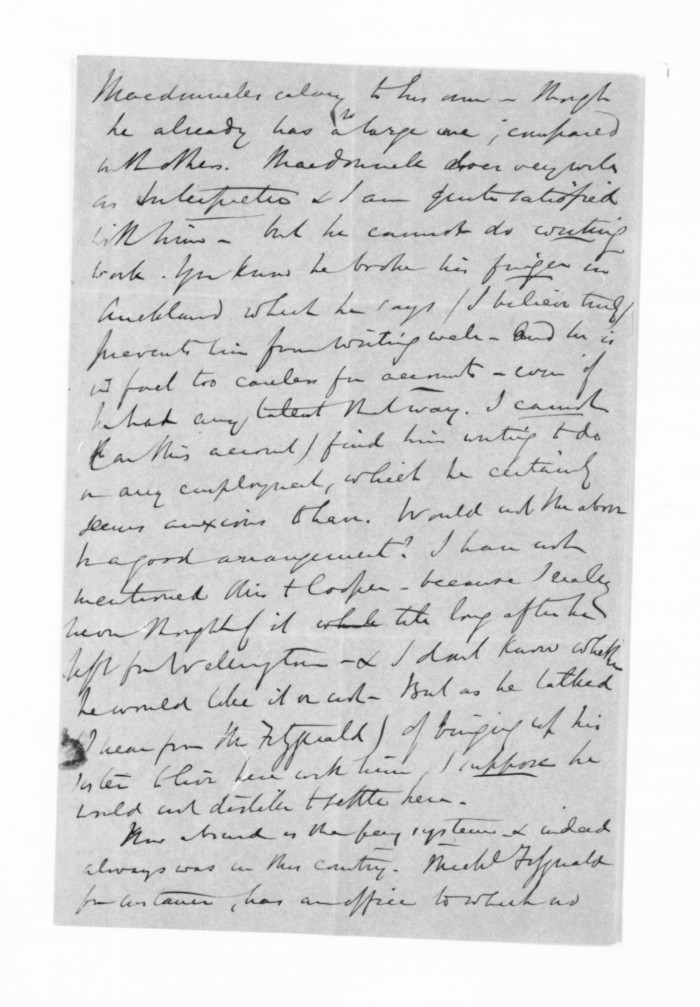 Macdonnells salary to his own - though
he already has a large one, compared
with others. Macdonnell does very well
as Interpreter & I am quite satisfied
with him - but he cannot do writing
work. You know he broke his finger in
Auckland which he says (I believe truly)
prevents him from writing well - and he is
in fact too careless for accounts - even if
he had any talent that way. I cannot
(on this account) find him writing to do
or any employment, which he certainly
seems anxious to have. Would not the above
be a good arrangement? I have not
mentioned this to Cooper - because I really
never thought of it till long after he
left for Wellington - & I dont know whether
he would like it or not - But as he talked
(I hear from Mr Fitzgerald) of bringing up his
sister to live here with him, I suppose he
would not dislike to settle here.
How absurd is the fee system - & indeed
always was in this country. Michl Fitzgerald
for instance, has an office to which no